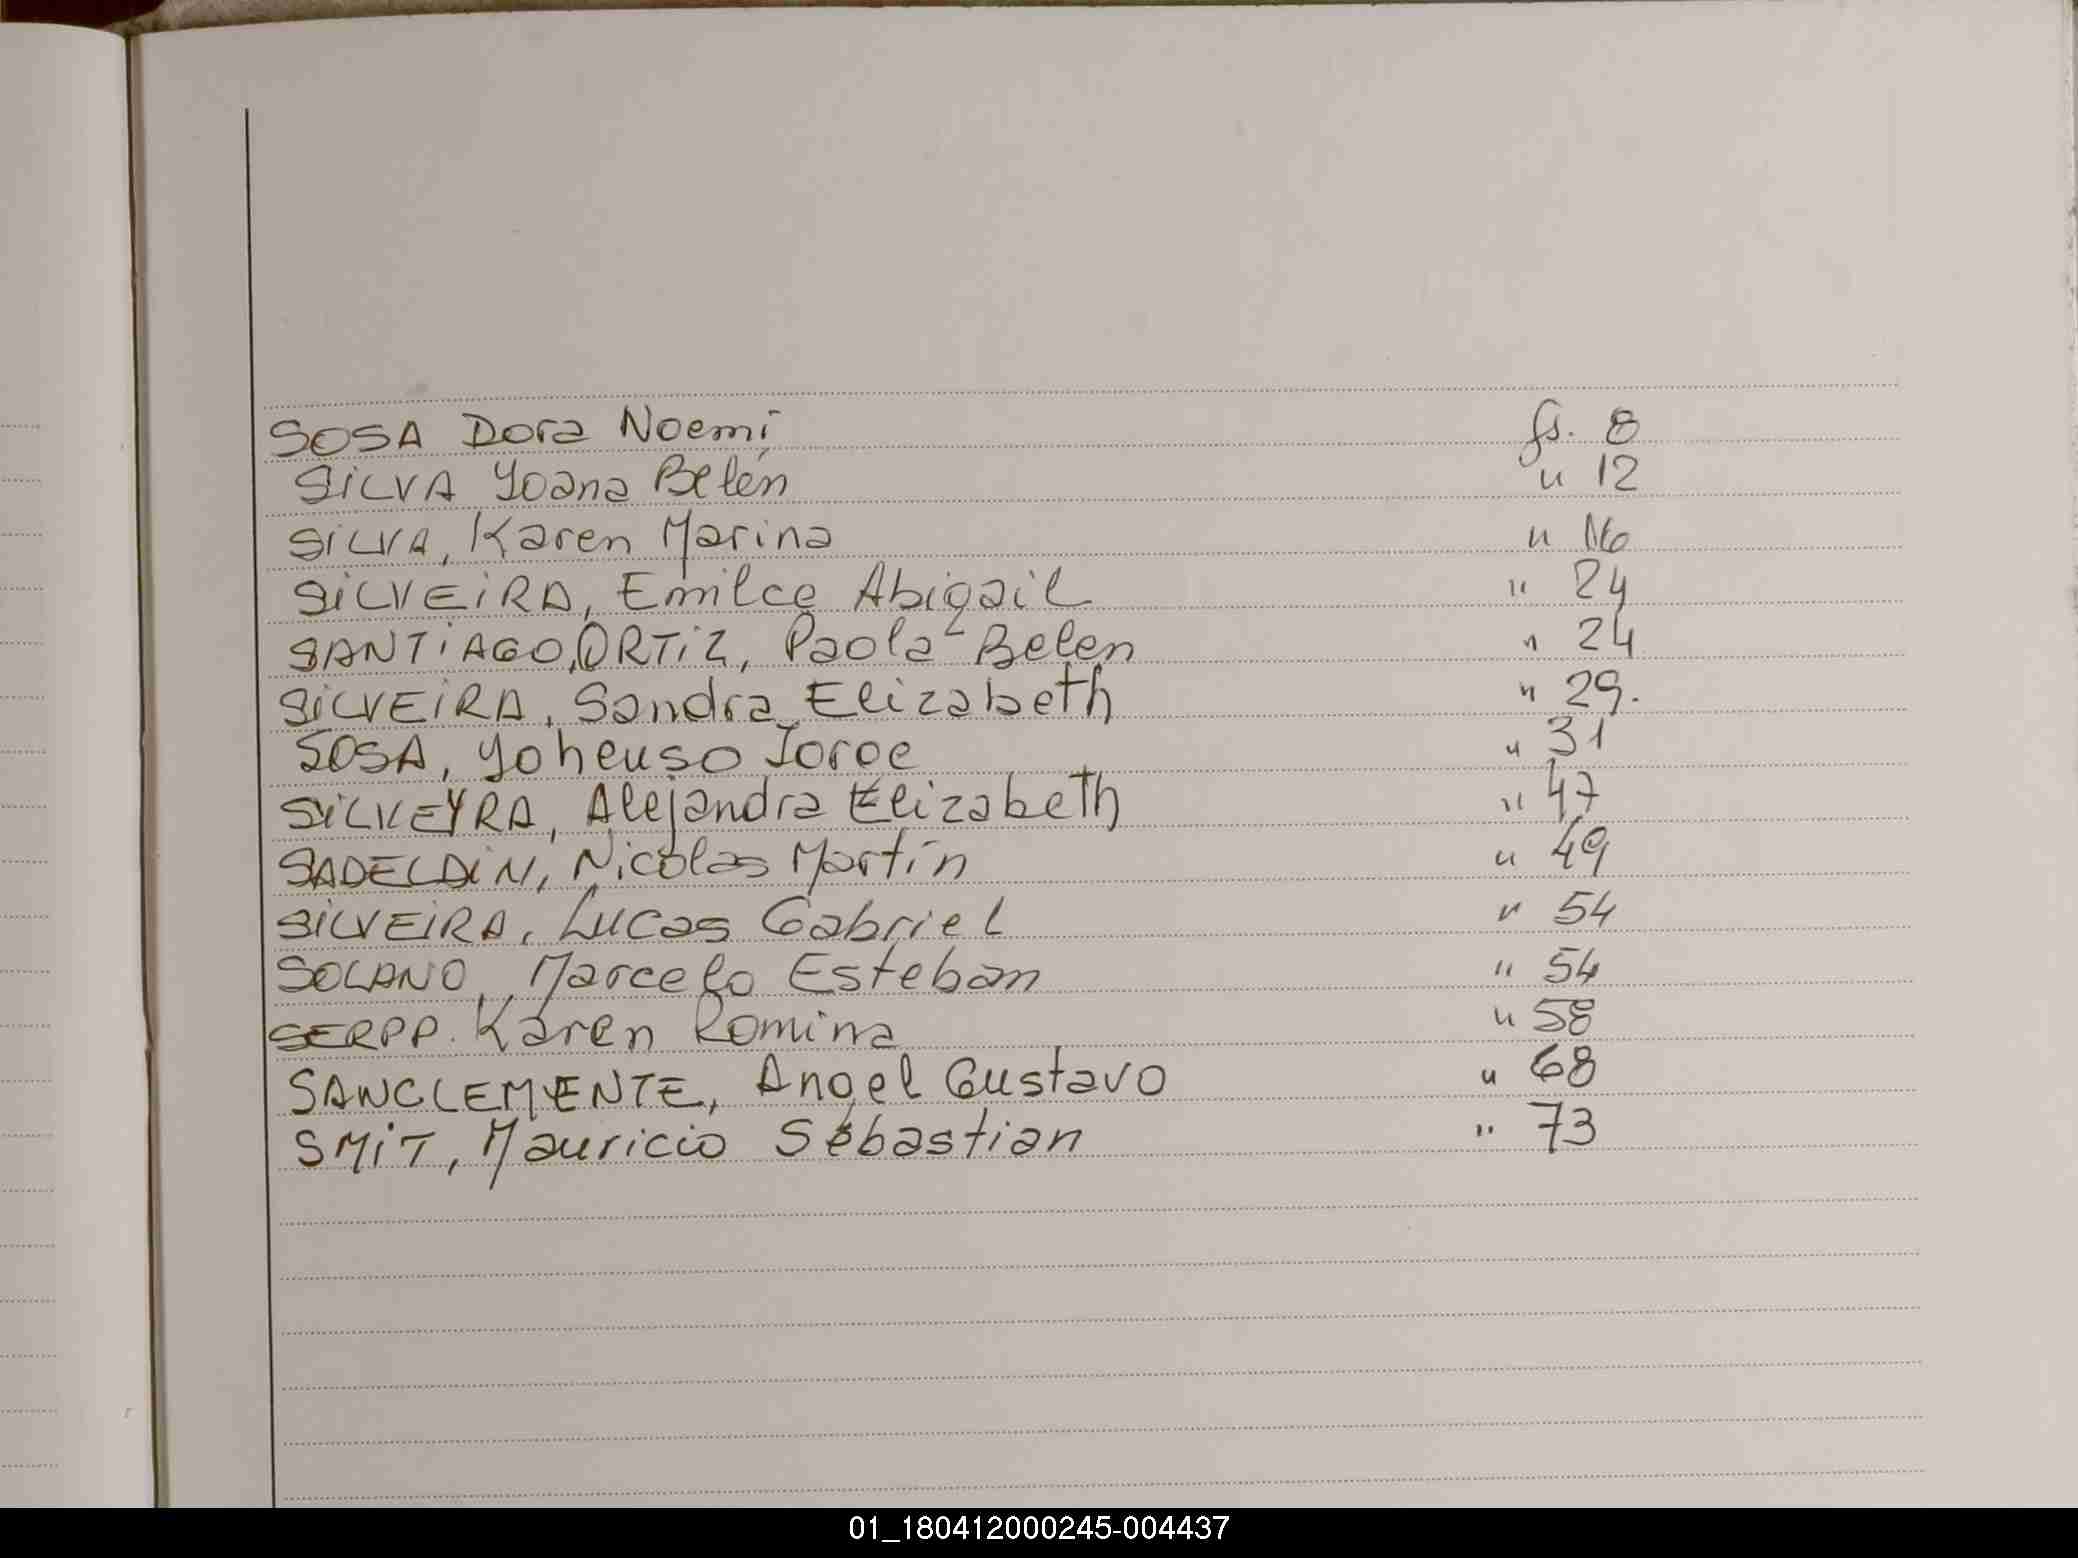 SOSA Dora Noemí fs. 8
SILVA Yoana Belén " 12
SILVA, Karen Marina " 16
SILVEIRA, Emilce Abigail " 24
SANTIAGO, ORTIZ, Paola Belen " 24
SILVEIRA, Sandra Elizabeth " 29.
SOSA, Jorge " 31
SILVEYRA, Alejandra Elizabeth " 47
SADELDIN, Nicolas Martín " 49
SILVEIRA, Lucas Gabriel " 54
SOLANO, Marcelo Esteban " 54
Karen Romina " 58
SANCLEMENTE, Angel Gustavo " 68
SMIT, Mauricio Sebastian " 73
01_180412000245-004437